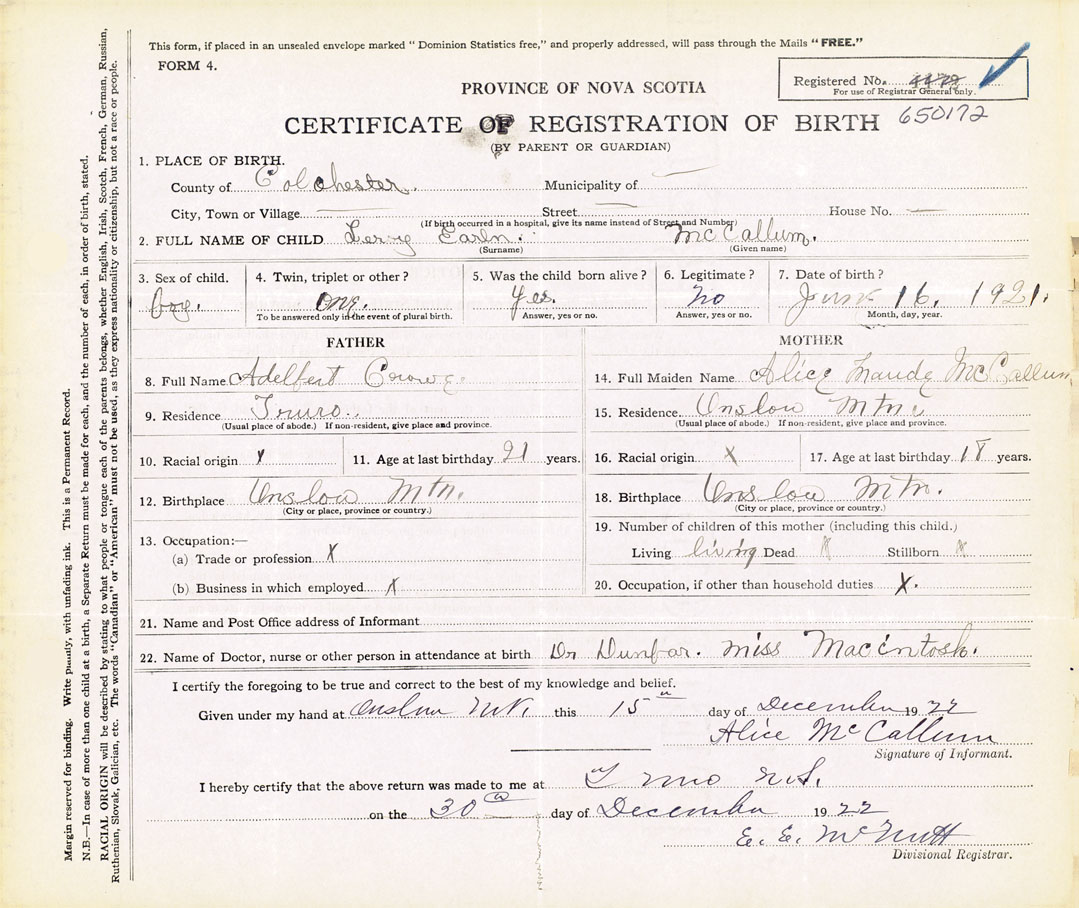 This form, if placed in an unsealed envelope marked “ Dominion Statistics free,” and properly addressed, will pass through the Mails “ FREE.”
FORM 4.
Registered No.
For use of Registrar General only.
PROVINCE OF NOVA SCOTIA
650172
CERTIFICATE OF REGISTRATION OF BIRTH
(BY PARENT OR GUARDIAN)
1. PLACE OF BIRTH.
County of Colchester. Municipality of
City, Town or Village Street House No.
(If birth occurred in a hospital, give its name instead of Street and Number)
2. FULL NAME OF CHILD McCallum.
(Surname) (Given name)
3. Sex of child. 4. Twin, triplet or other? 5. Was the child born alive? 6. Legitimate? 7. Date of birth?
boy. one. Yes. no June 16. 1921.
To be answered only in the event of plural birth. Answer, yes or no. Answer, yes or no. Month, day, year.
FATHER MOTHER
8. Full Name Adelbert Crowe 14. Full Maiden Name Alice Maude McCallum
9. Residence Truro. 15. Residence. Onslow Mtn
(Usual place of abode.) If non-resident, give place and province. (Usual place of abode.) If non-resident, give place and province.
10. Racial origin x 11. Age at last birthday 21 years. 16. Racial origin x 17. Age at last birthday 18 years.
12. Birthplace Onslow Mtn. 18. Birthplace Onslow Mtn.
(City or place, province or country.) (City or place, province or country.)
13. Occupation:— 19. Number of children of this mother (including this child.)
(a) Trade or profession x Living living Dead Stillborn
(b) Business in which employed x 20. Occupation, if other than household duties x.
21. Name and Post Office address of Informant
22. Name of Doctor, nurse or other person in attendance at birth Dr Dunbar. Miss Macintosh.
I certify the foregoing to be true and correct to the best of my knowledge and belief.
Given under my hand at Onslow this 15th day of December 1922
Alice McCallum
Signature of Informant.
I hereby certify that the above return was made to me at Truro N.S.
on the 30 day of December 1922
E. E. McNutt
Divisional Registrar.
Margin reserved for binding. Write plainly, with unfading ink. This is a Permanent Record.
N.B.—In case of more than one child at a birth, a Separate Return must be made for each, and the number of each, in order of birth, stated.
RACIAL ORIGIN will be described by stating to what people or tongue each of the parents belongs, whether English, Irish, Scotch, French, German, Russian,
Ruthenian, Slovak, Galician, etc. The words “Canadian” or “American” must not be used, as they express nationality or citizenship, but not a race or people.